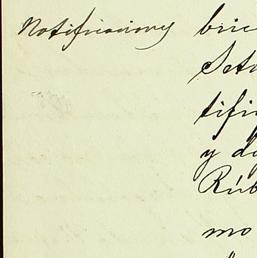 Notificaciones
bric
Seta
tific
y do
Rúb
mo